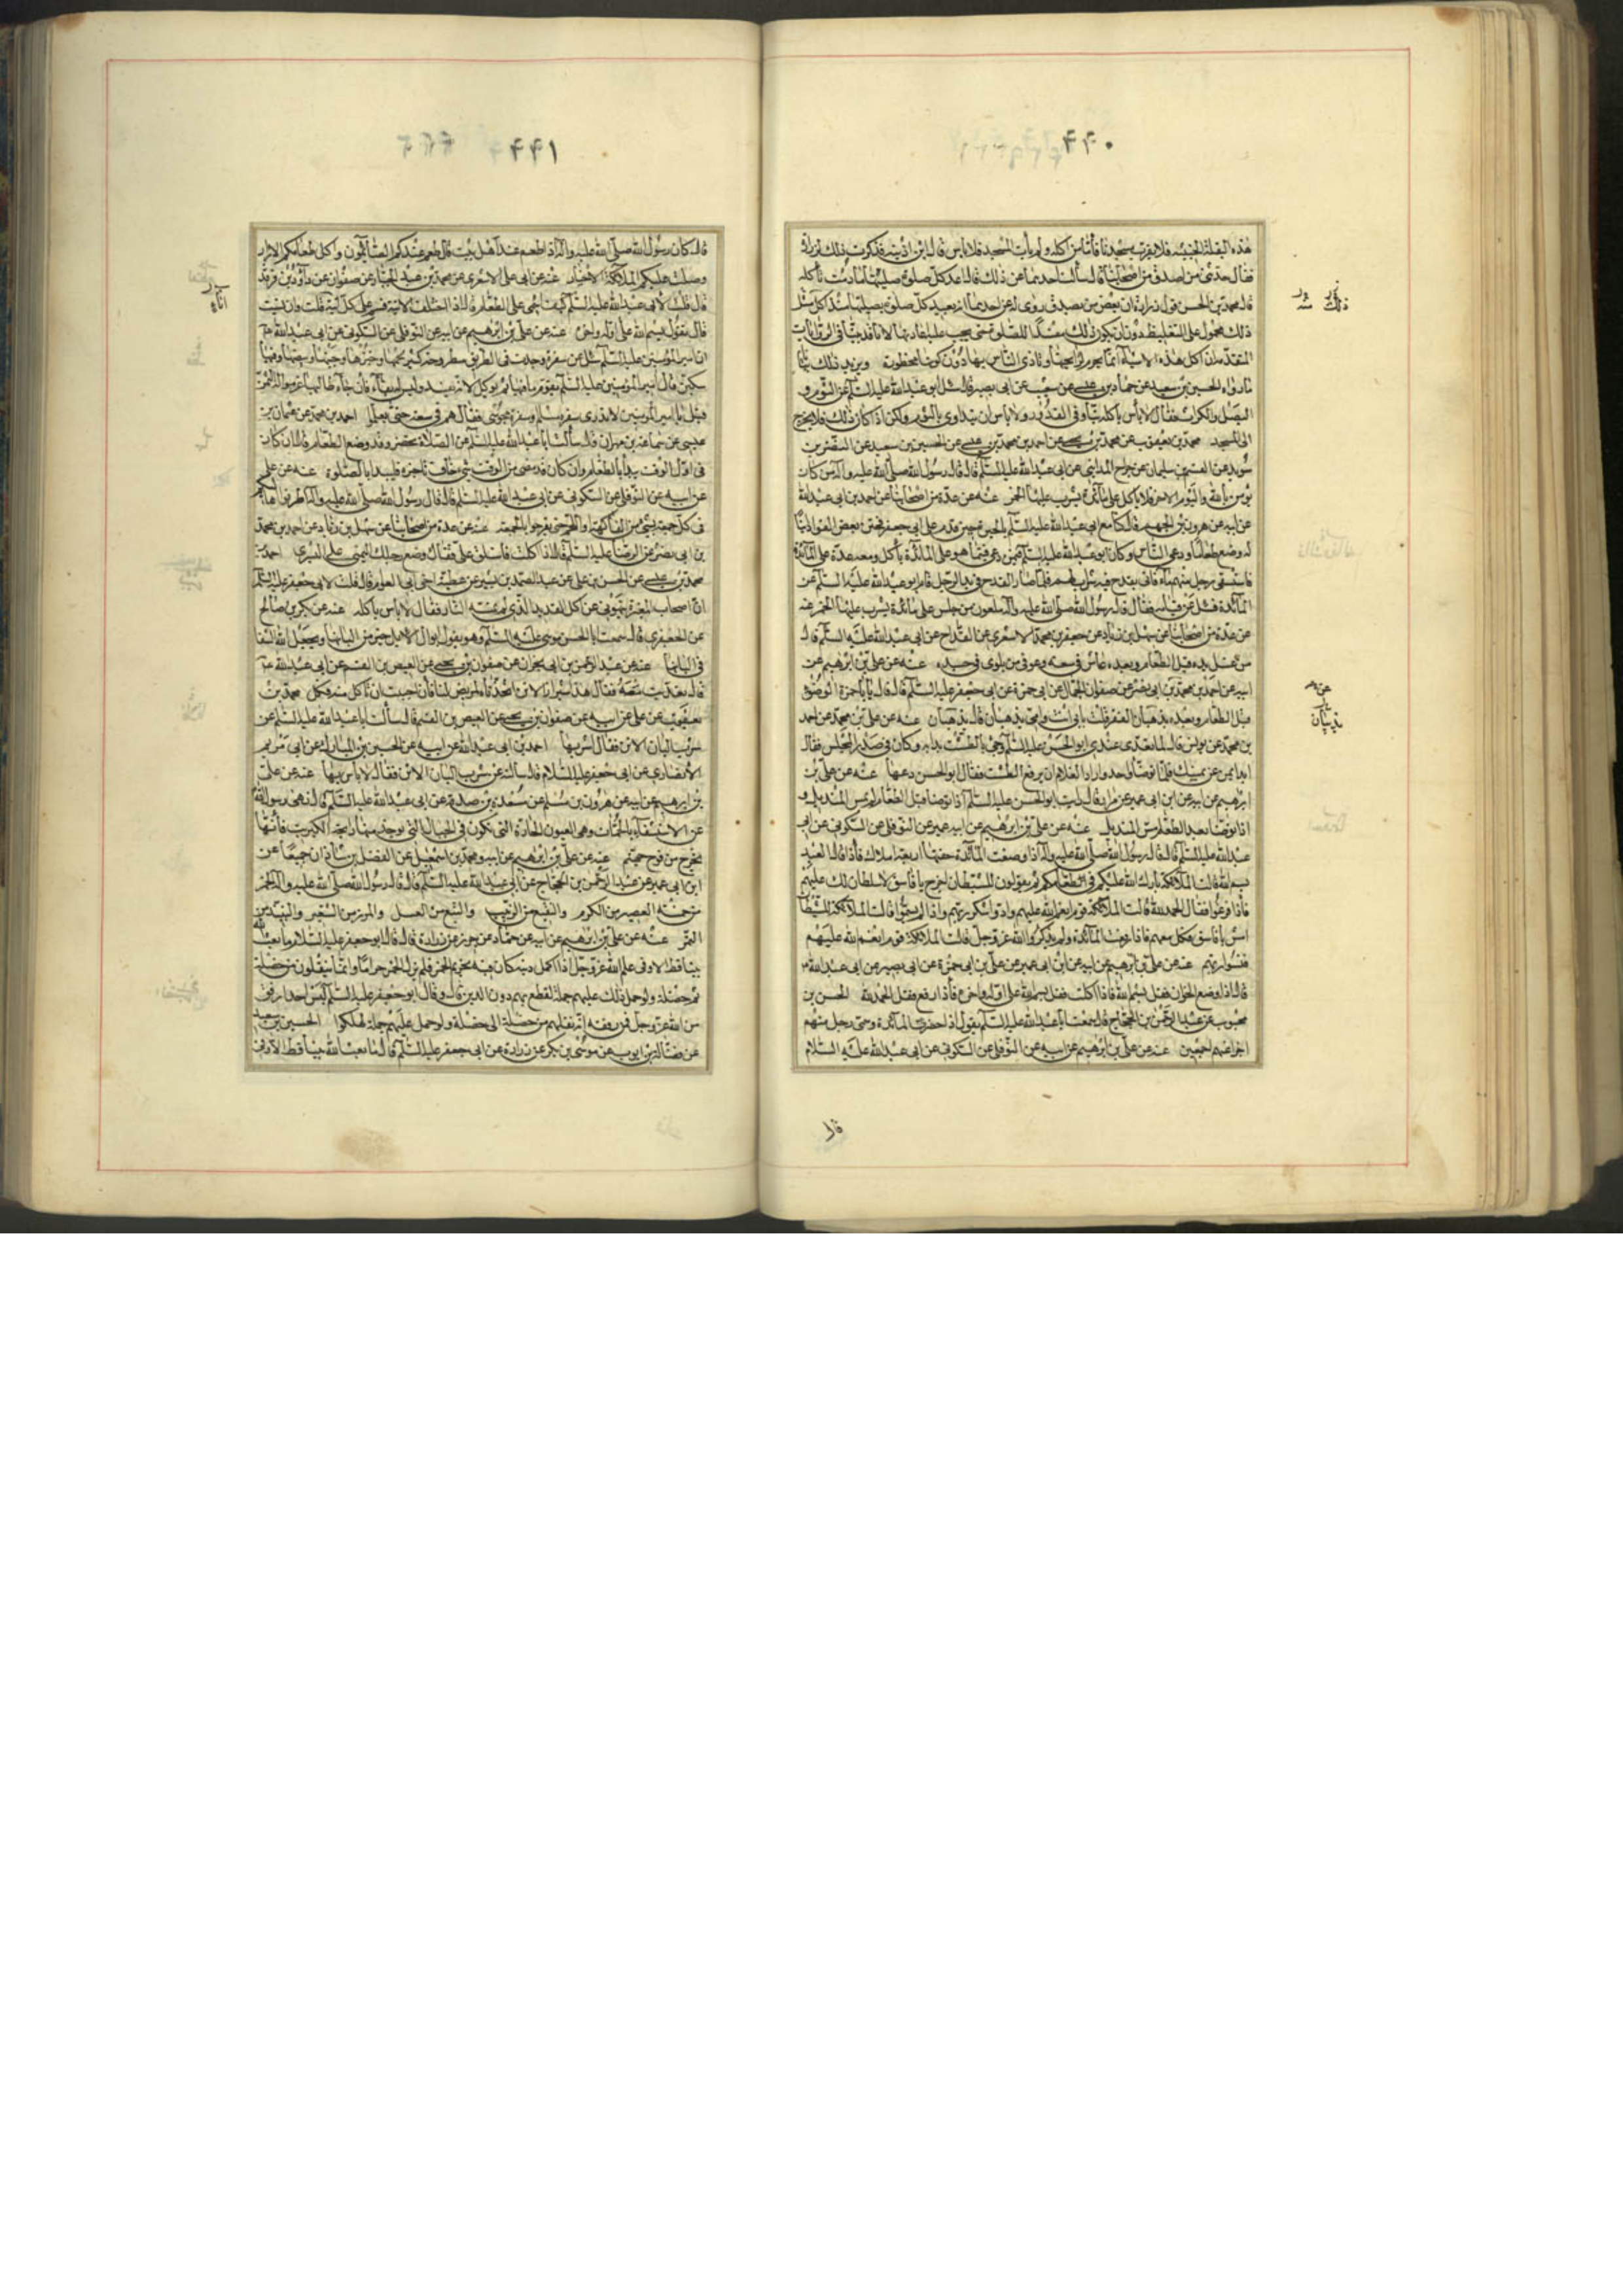 ۶۶۰
هذه البقلة الخبيثة فلا يقرب مسجدنا فأما من اكله ولم يأت المسجد فلا بأس قال ابن اذينه فذكرت ذلك لزرارة
فقال حدثني من اصدق من اصحابنا قال سألت احدهما عن ذلك فقال اعد كل صلوة صليتها ما دمت تأكله
قال محمد بن الحسن قول زرارة ان بعض من يصدق روى له عن احدهما ان يعيد كل صلوة يصليها منذ اكل مثل
ذلك محمول على التغليظ دون ان يكون ذلك مفسدا للصلوة حتى يجب عليه اعادتها لانا قد بينا في الروايات
المتقدمة ان اكل هذه الاشياء انما يحرم لرائحتها وتأذى الناس بها دون كونها محظورة ويزيد ذلك بيانا
ما رواه الحسين بن سعيد عن حماد بن عيسى عن شعيب عن ابي بصير قال سئل ابو عبدالله عليه السلم عن الثوم و
البصل والكراث فقال لا بأس بأكله نيا وفي القدور ولا بأس ان يتداوى بالثوم ولكن اذا كان ذلك فلا يخرج
الى المسجد محمد بن يعقوب عن محمد بن يحيى عن احمد بن محمد بن عيسى عن الحسين بن سعيد عن النضر بن
سويد عن القسم بن سليمان عن جراح المدايني عن ابي عبدالله عليه السلم قال قال رسول الله صلى الله عليه وآله من كان
يؤمن بالله واليوم الاخر فلا يأكل على مائدة يشرب عليها الخمر عنه عن عدة من اصحابنا عن احمد بن ابي عبدالله
عن ابيه عن هرون بن الجهم قال كنا مع ابي عبدالله عليه السلم بالحيرة حين قدم على ابي جعفر فختن بعض القواد ابنا
له وضع طعاما ودعى الناس وكان ابو عبدالله عليه السلم فيمن دعي فبينا هو على المائدة يأكل ومعه عدة على المائدة
فاستسقى رجل منهم ماء فاتى بقدح فيه شراب لهم فلما صار القدح في يد الرجل قام ابو عبدالله عليه السلم عن
المائدة فسئل عن قيامه فقال قال رسول الله صلى الله عليه وآله ملعون من جلس على مائدة يشرب عليها الخمر عنه
عن عدة من اصحابنا عن سهل بن زياد عن جعفر بن محمد الاشعري عن القداح عن ابي عبدالله عليه السلم قال
من غسل يده قبل الطعام وبعده عاش في سعة وعوفي من بلوى في جسده عنه عن علي بن ابرهيم عن
ابيه عن احمد بن محمد بن ابي نصر عن صفوان الجمال عن ابي حمزة عن ابي جعفر عليه السلم قال قال يا ابا حمزة الوضوء
قبل الطعام وبعده يذهبان الفقر قلت بابي انت وامي يذهبان قال يذهبان عنه عن علي بن محمد عن احمد
بن محمد عن يونس قال لما تغدى عندي ابو الحسن عليه السلم وجئ بالطشت بدأ به وكان في صدر المجلس فقال
ابدأ بمن عن يمينك فلما توضأ واحد واراد الغلام ان يرفع الطشت فقال ابو الحسن دعها عنه عن علي بن
ابرهيم عن ابيه عن ابن ابي عمير عن مرازم قال رأيت ابو الحسن عليه السلم اذا توضأ قبل الطعام لم يمس المنديل و
اذا توضأ بعد الطعام مس المنديل عنه عن علي بن ابرهيم عن ابيه عن النوفلي عن السكوني عن ابي
عبدالله عليه السلم قال قال رسول الله صلى الله عليه وآله اذا وضعت المائدة حفتها اربعة املاك فاذا قال العبد
بسم الله قالت الملائكة بارك الله عليكم في طعامكم ثم يقولون للشيطان اخرج يا فاسق لا سلطان لك عليهم
فاذا فرغوا فقال الحمد لله قالت الملائكة قوم انعم الله عليهم وادوا شكر ربهم واذا لم يسموا قالت الملائكة للشيطان
ادن يا فاسق فكل معهم فاذا رفعت المائدة ولم يذكروا الله عز وجل قالت الملائكة قوم انعم الله عليهم
فنسوا ربهم عنه عن علي بن ابرهيم عن ابيه عن ابن ابي عمير عن علي بن ابي حمزة عن ابي بصير عن ابي عبدالله
قال اذا وضع الخوان فقل بسم الله فاذا اكلت فقل بسم الله على اوله واخره فاذا رفع فقل الحمد لله الحسن بن
محبوب عن عبد الرحمن بن الحجاج قال سمعت ابا عبدالله عليه السلم يقول اذا حضرت المائدة وسمى رجل منهم
اجزأ عنهم اجمعين عنه عن علي بن ابرهيم عن ابيه عن النوفلي عن السكوني عن ابي عبدالله عليه السلام
قال
۶۶۱
قال كان رسول الله صلى الله عليه وآله اذا طعم عند اهل بيت قال طعم عندكم الصائمون واكل طعامكم الابرار
وصلت عليكم الملائكة الاخيار عنه عن ابي علي الاشعري عن محمد بن عبد الجبار عن صفوان عن داود بن فرقد
قال قلت لابي عبدالله عليه السلم كيف اسمي على الطعام قال اذا اختلفت الانية فسم على كل انية قلت فان نسيت
قال يقول بسم الله على اوله واخره عنه عن علي بن ابرهيم عن ابيه عن النوفلي عن السكوني عن ابي عبدالله
ان امير المؤمنين عليه السلم سئل عن سفرة وجدت في الطريق مطروحة كثير لحمها وخبزها وجبنها وبيضها وفيها
سكين قال امير المؤمنين عليه السلم يقوم ما فيها ثم يؤكل لانه يفسد وليس له بقاء فان جاء طالبها غرموا له الثمن
فقيل يا امير المؤمنين لا ندري سفرة مسلم او سفرة مجوسي فقال هم في سعة حتى يعلموا احمد بن محمد عن عثمان بن
عيسى عن سماعة بن مهران قال سألت ابا عبدالله عليه السلم عن الصلاة تحضر وقد وضع الطعام قال ان كان
في اول الوقت يبدأ بالطعام وان كان قد مضى من الوقت شئ يخاف تأخيره فليبدأ بالصلوة عنه عن علي
عن ابيه عن النوفلي عن السكوني عن ابي عبدالله عليه السلم قال قال رسول الله صلى الله عليه وآله اطرفوا اهاليكم
في كل جمعة بشئ من الفاكهة واللحم حتى يفرحوا بالجمعة عنه عن عدة من اصحابنا عن سهل بن زياد عن احمد بن محمد
بن ابي نصر عن الرضا عليه السلم قال اذا اكلت فاستلق على قفاك وضع رجلك اليمنى على اليسرى احمد بن
محمد بن عيسى عن الحسن بن علي عن عبد الصمد بن بشير عن عطية اخي ابي العوام قال قلت لابي جعفر عليه السلم
ان اصحاب المغيرة ينهوني عن اكل القديد الذي لم تمسه النار فقال لا بأس بأكله عنه عن بكر بن صالح
عن الجعفري قال سمعت ابا الحسن موسى عليه السلم وهو يقول ابوال الابل خير من البانها ويجعل الله الشفا
في البانها عنه عن عبد الرحمن بن ابي نجران عن صفوان بن يحيى عن العيص بن القسم عن ابي عبدالله
قال تغديت معه فقال هذا شيراز الاتن اتخذناه لمريض لنا فان احببت ان تأكل منه فكل محمد بن
يعقوب عن علي عن ابيه عن صفوان بن يحيى عن العيص بن القسم قال سألت ابا عبدالله عليه السلم عن
شرب البان الاتن فقال اشربها احمد بن ابي عبدالله عن ابيه عن الحسين بن المبارك عن ابي مريم
الأنصاري عن ابي جعفر عليه السلام قال سألته عن شرب البان الاتن فقال لا بأس بها عنه عن علي
بن ابرهيم عن ابيه عن هرون بن مسلم عن مسعدة بن صدقة عن ابي عبدالله عليه السلم قال نهى رسول الله
عن الاستشفاء بالحمات وهي العيون الحارة التي تكون في الجبال التي يوجد منها رائحة الكبريت فانها
تخرج من فوح جهنم عنه عن علي بن ابرهيم عن ابيه ومحمد بن اسمعيل عن الفضل بن شاذان جميعا عن
ابن ابي عمير عن عبد الرحمن بن الحجاج عن ابي عبدالله عليه السلم قال قال رسول الله صلى الله عليه وآله الخمر
من خمسة العصير من الكرم والنقيع من الزبيب والبتع من العسل والمزر من الشعير والنبيذ من
التمر عنه عن علي بن ابرهيم عن ابيه عن حماد عن حريز عن زرارة قال قال ابو جعفر عليه السلام ما بعث الله
نبيا قط الا وفي علم الله عز وجل اذا اكمل دينه كان فيه تحريم الخمر فلم تزل الخمر حراما وانما ينقلون من خصلة
ثم خصلة ولو حمل ذلك عليهم جملة لقطع بهم دون الدين قال وقال ابو جعفر عليه السلم ليس احد ارفق
من الله عز وجل فمن رفقه انه نقلهم من خصلة الى خصلة ولو حمل عليهم جملة لهلكوا الحسين بن سعيد
عن فضالة بن ايوب عن موسى بن بكر عن زرارة عن ابي جعفر عليه السلم قال ما بعث الله نبيا قط الا وفي